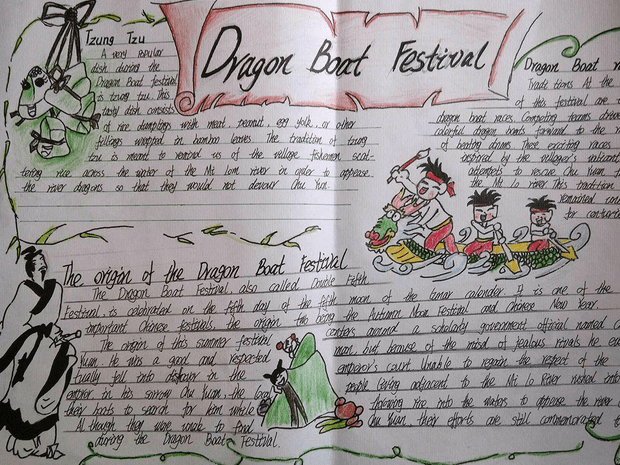 Dragon Boat Festival
Tzung Tzu
A very popular
dish during the
Dragon Boat festival
is tzung tzu. This
tasty dish consists
of rice dumplings with meat, peanut, egg yolk, or other
fillings wrapped in bamboo leaves. The tradition of tzung
tzu is meant to remind us of the village fishermen scat-
tering rice across the water of the Mi Lom river in order to appease
the river dragons so that they would not devour Chu Yun.
Dragon Boat
Traditions At the
of this festival are the
dragon boat races. Competing teams drive
colorful dragon boats forward to the
of beating drums These exciting races
inspired by the villager's valiant
attempts to rescue Chu Yuan
the Mi Lo river This tradition
remained
for centuries
The origin of the Dragon Boat Festival
The Dragon Boat Festival, also called Double Fifth
Festival, is celebrated on the fifth day of the fifth moon of the lunar calendar. It is one of the
important Chinese festivals, the origin the being the Autumn Moon Festival and Chinese New Year
The origin of this summer festival centers around a scholarly government official named
Yuan. He was a good and respected man, but because of the misd of jealous rivals he
tually fell into disfavor in the emperor's court. Unable to regain the respect of the
empror in his sorrow Chu Yuan the people living adjacent to the Mi Lo River rushed into
their boats to search for him while throwing rice into the waters to appease the river
Although they were unable to find Chu Yuan, their efforts are still commemorated
during the Dragon Boat Festival.